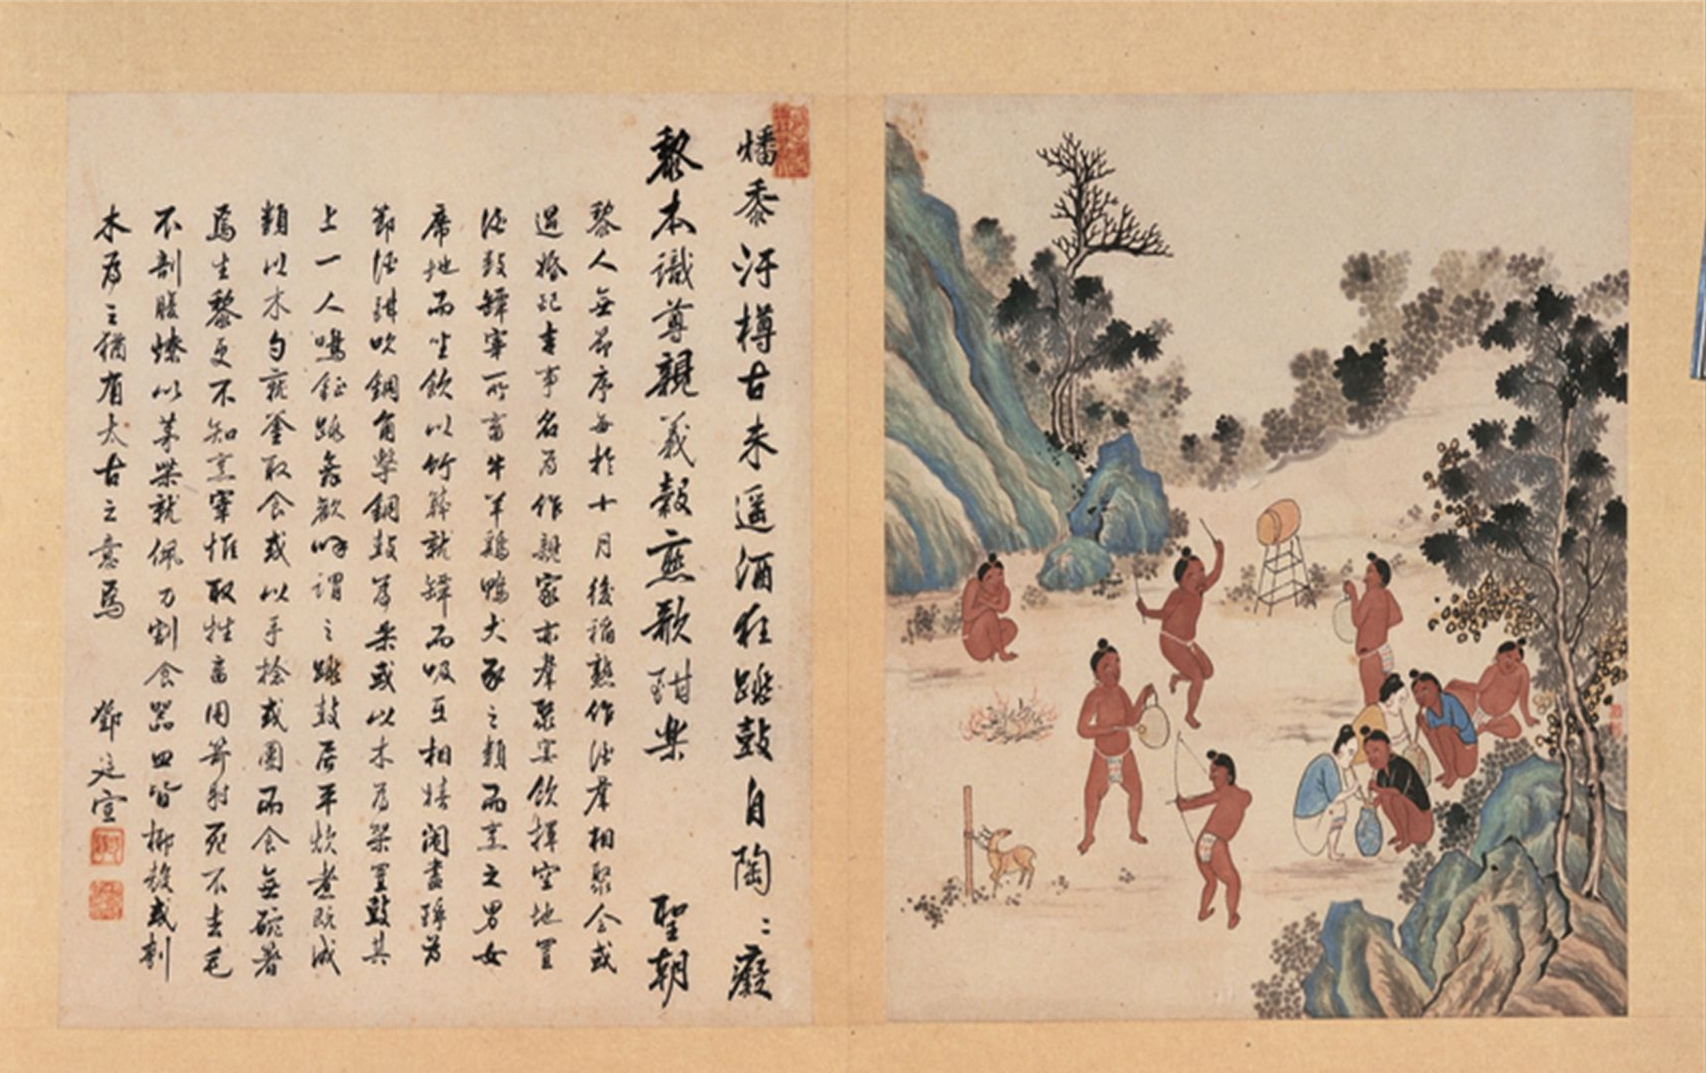 燔黍汙樽古未遥酒狂跳鼓自陶〻癡
黎本識尊親義鼓應歌酣樂聖朝
黎人無節序每於十月後稻熟作酒羣相聚会或
遇婚祀吉事名为作親家亦羣聚宴飲擇空地置
酒数罈宰所畜牛羊鷄鴨犬豕之類而烹之男女
席地而坐飲以竹筒就罈而吸互相嬉闹盡罈为
節酒酣吹銅角擊銅鼓为樂或以木为架置鼓其
上一人鳴鉦跳舞歡呼謂之跳鼓居平炊煮既成
類以木勺就釜取食或以手捻或團而食無碗箸
焉生黎更不知烹宰惟取牲畜用箭射死不去毛
不剖腹燎以茅柴就佩刀割食器皿皆椰殼或刳
木为之猶有太古之意焉
鄧廷宣